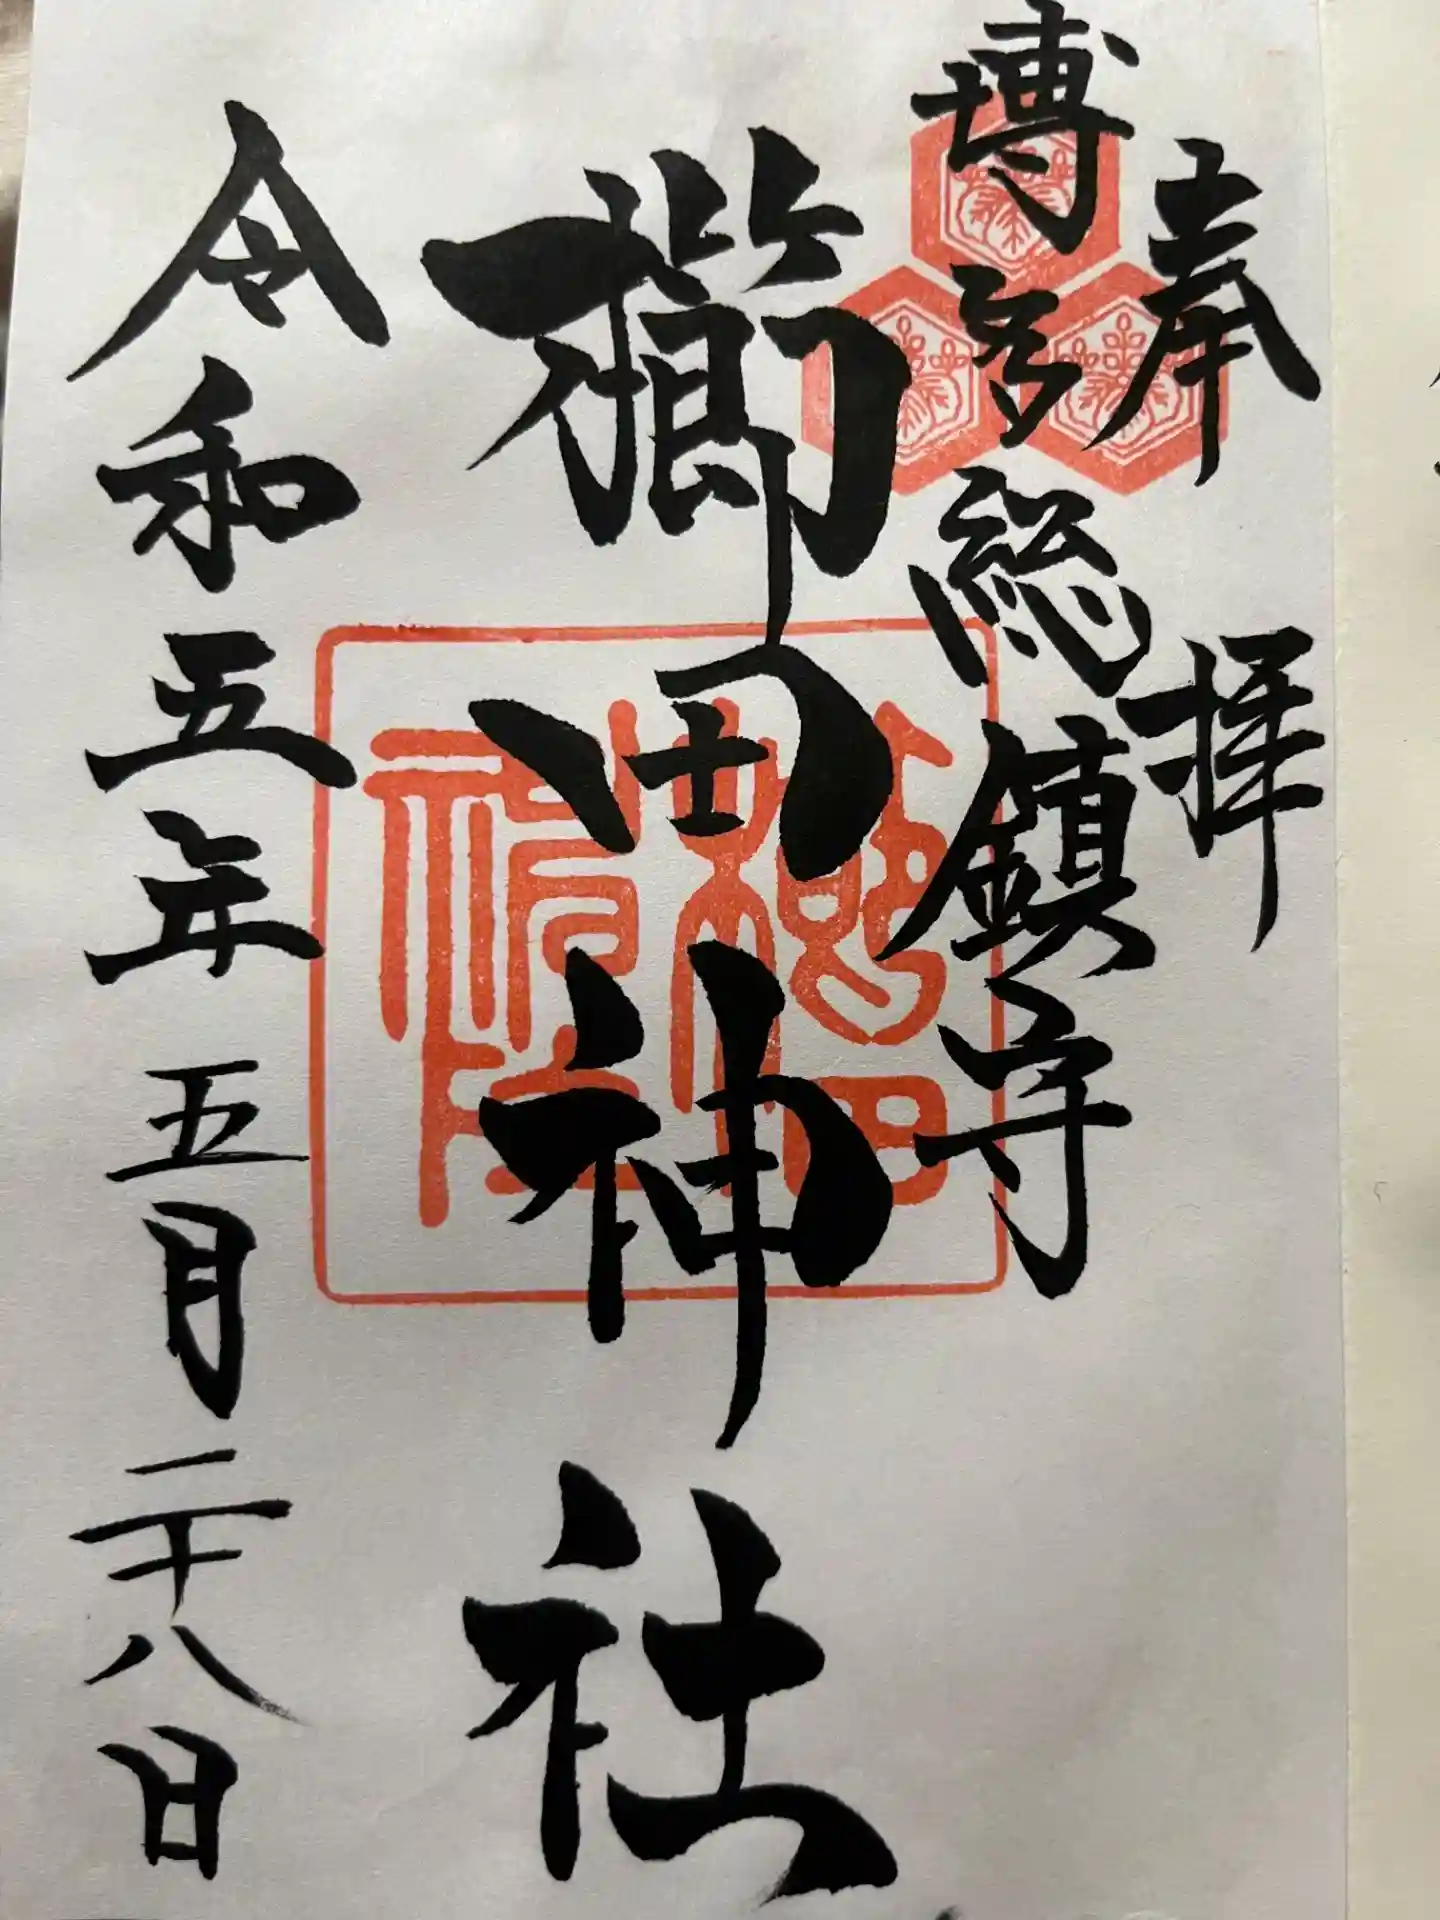 奉拝
博多総鎮守
櫛田神社
令和五年五月二十八日